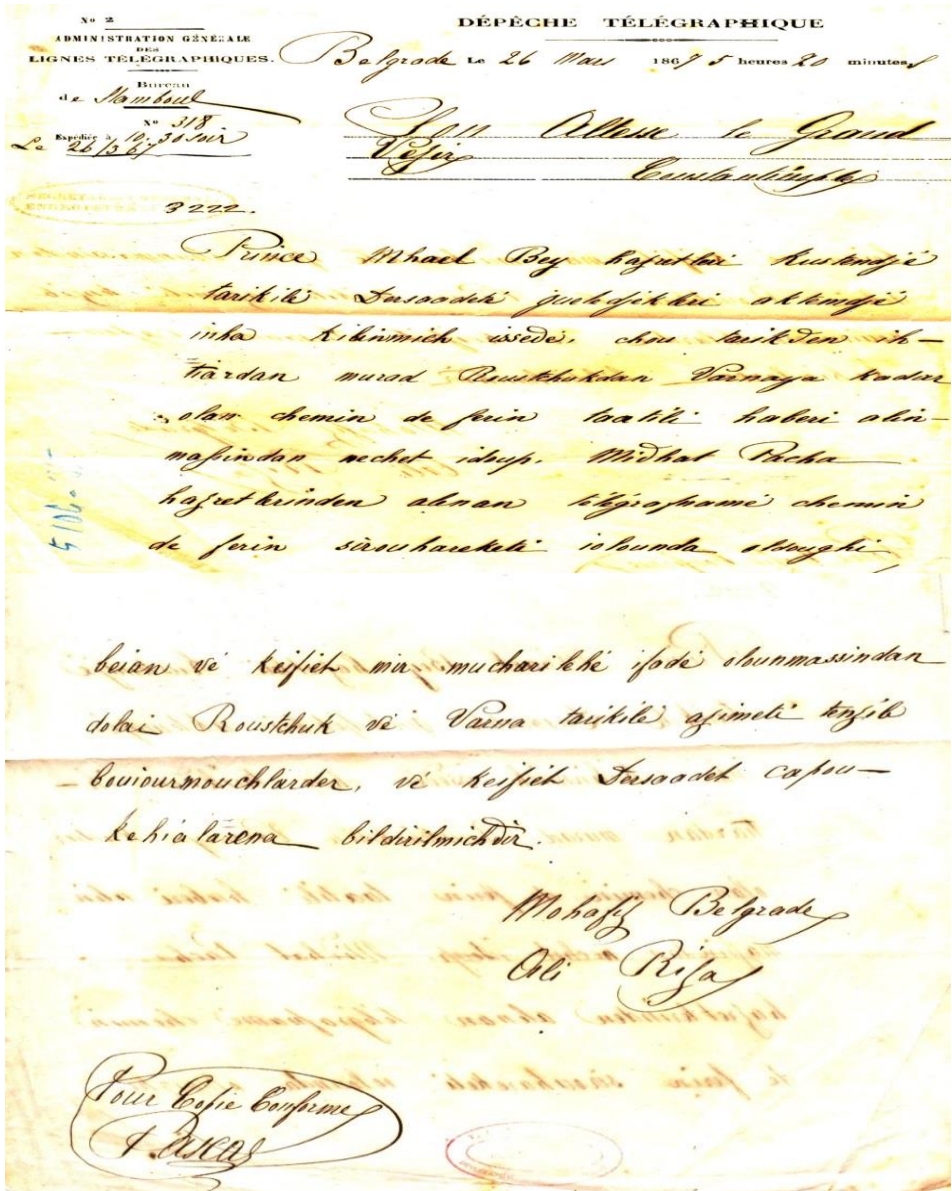 No 2
ADMINISTRATION GÉNÉRALE
DES
LIGNES TÉLÉGRAPHIQUES.
Bureau
de Stamboul
No 318
Expédiée à 10.30 soir
Le 26/3 67
DÉPÈCHE TÉLÉGRAPHIQUE
Belgrade Le 26 Mars 1867 5 heures 20 minutes
Son Altesse le Grand
Vesir
Constantinople
3222.
Prince Mhael Bey hazretleri Kustendjé
tarikilé Dersaadeté gueledjekleri aktemdjé
inha kilinmich issédé. chou tarikden ih-
tiardan murad Roustchukdan Varnaya kadar
olan chemin de ferin taatili haberi alin-
massindan nechet idup. Midhat Pacha
hazretlerinden alenan télégraphamé chemin
de ferin sirouhareketi iolounda oldoughi
beian vé keifiet mir mucharilehé ifadé olounmassindan
dolai Roustchuk vé Varna tarikilé azimeti tensib
bouiourmouchlarder, vé keifiet Dersaadet capou-
kehialarena bildirilmichdir.
Mohafiz Belgrade
Ali Riza
Pour Copie Conforme